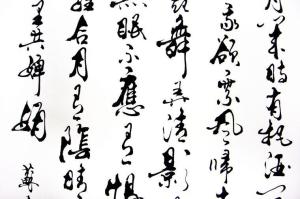 月幾時有把酒
我欲乘風歸去
舞弄清影
無眠不應恨
合月有陰晴
里共嬋娟
蘇